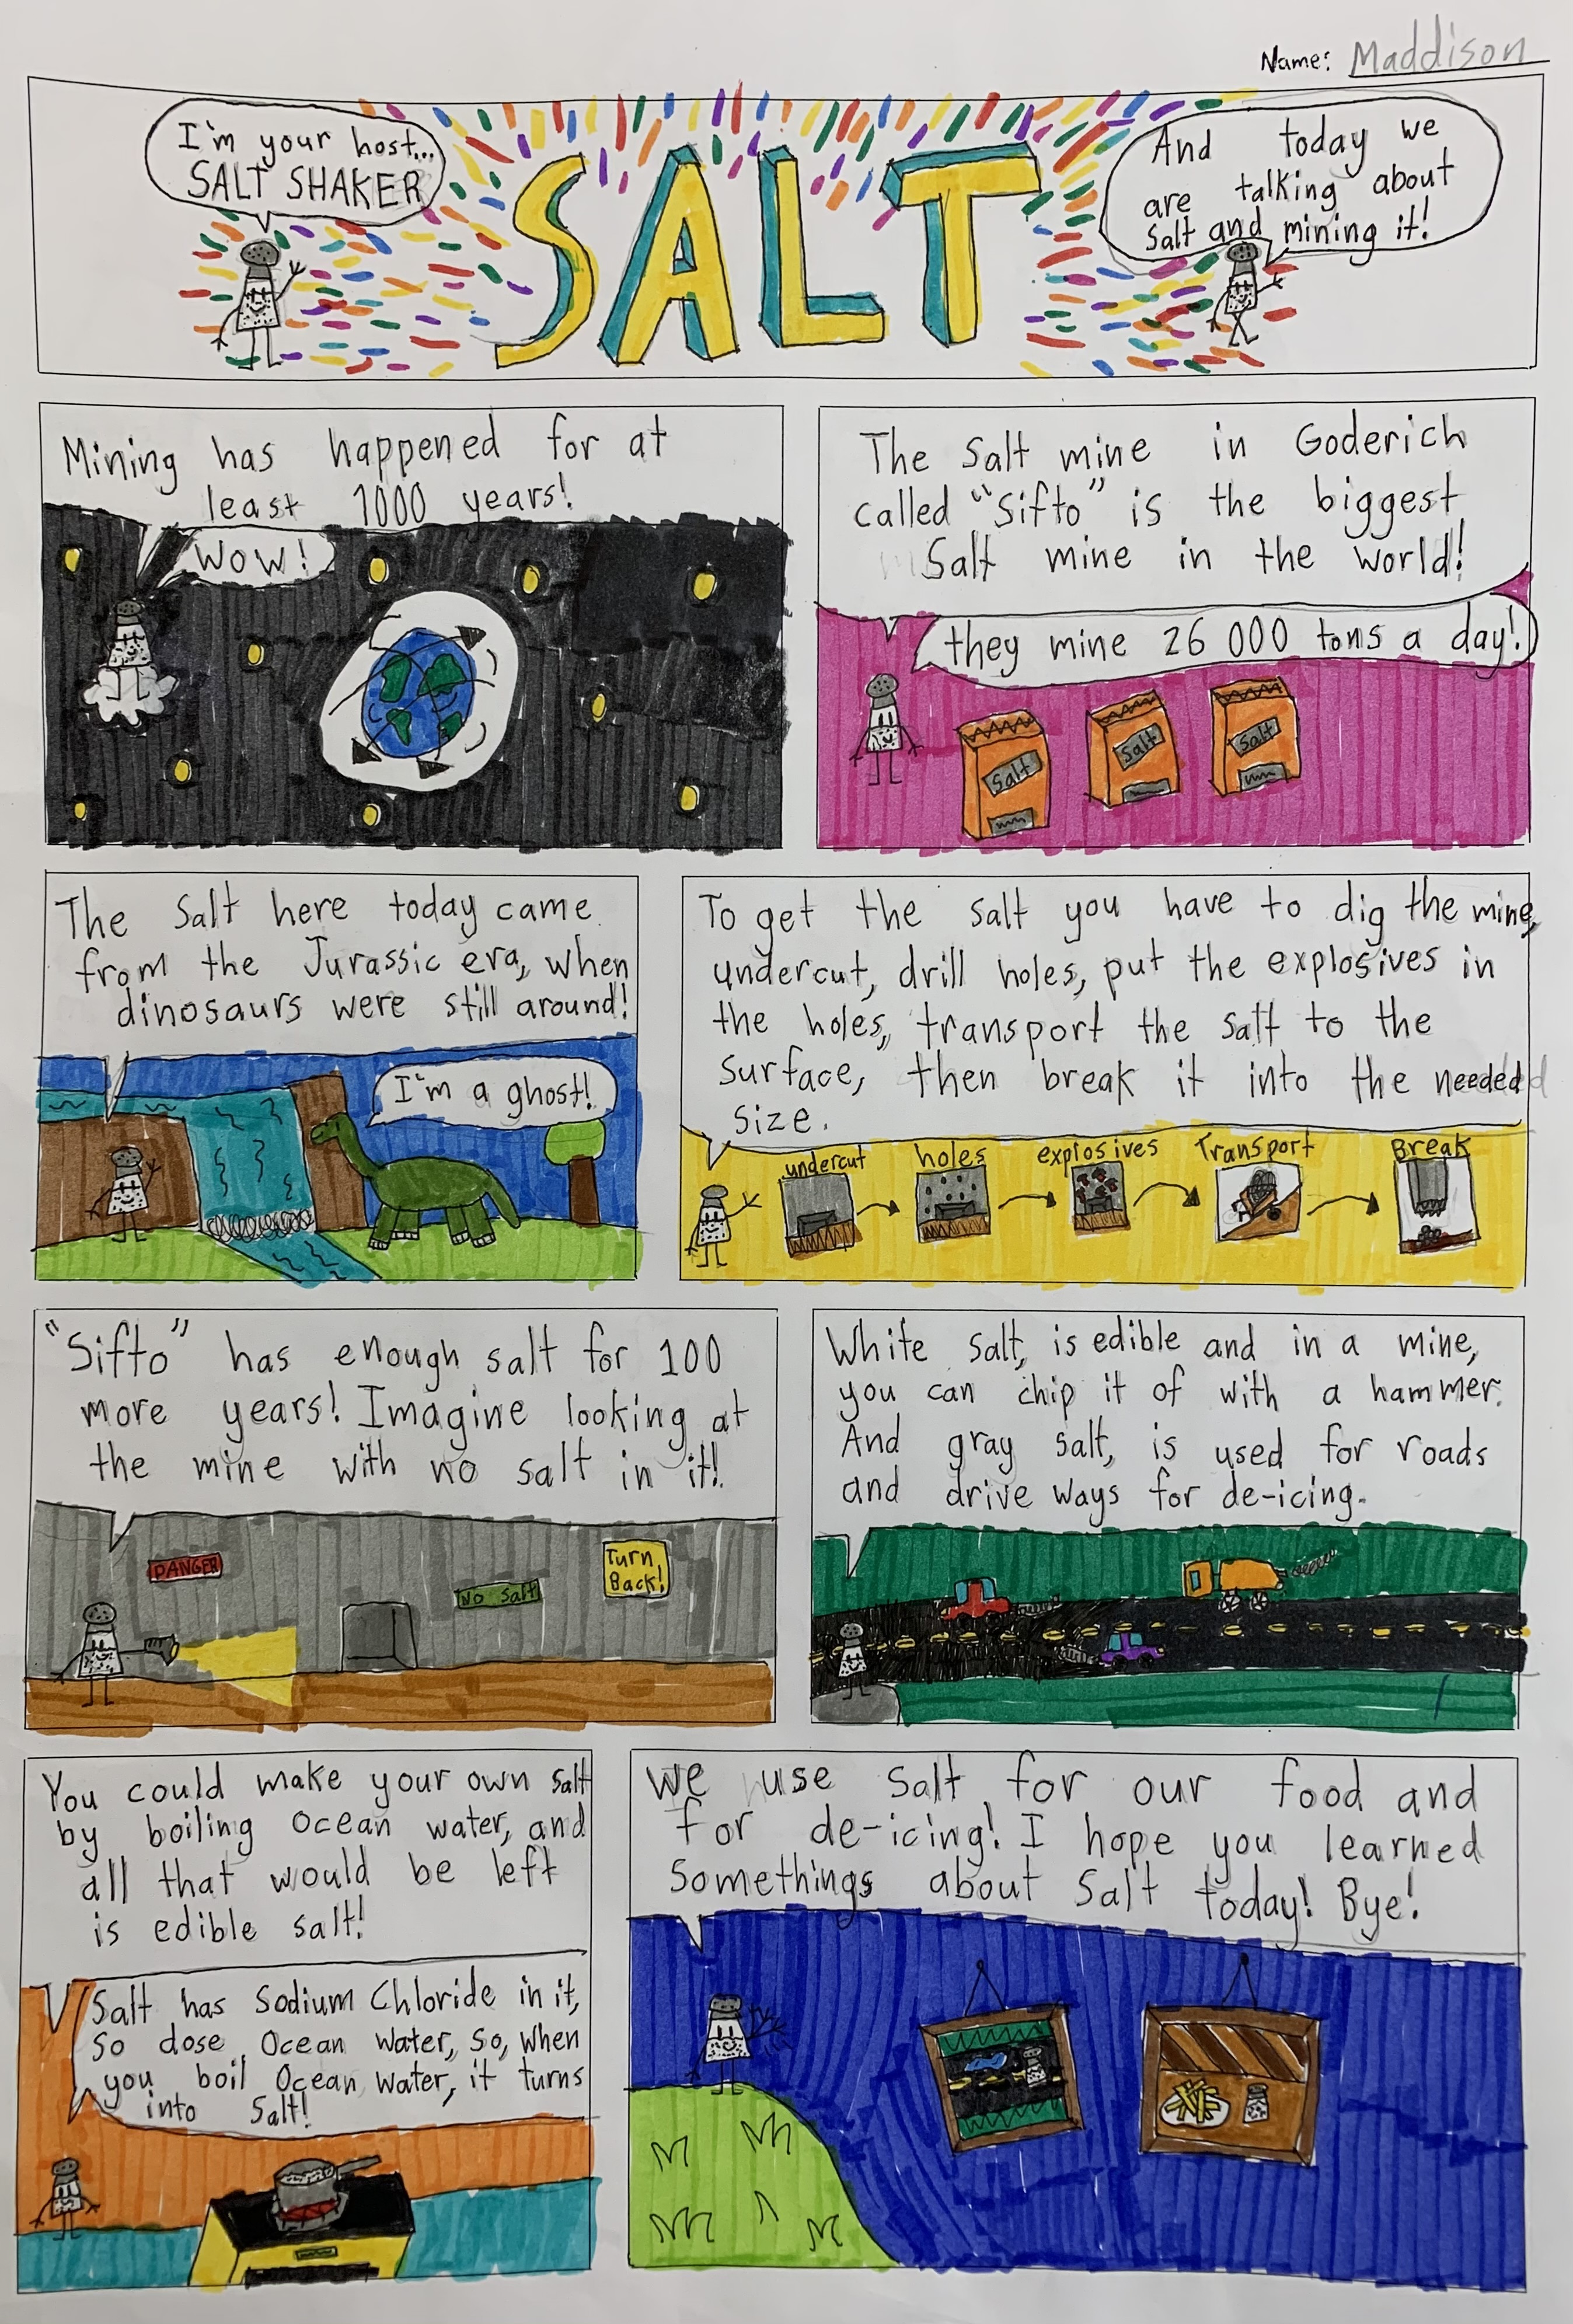 Name: Maddison
I'm your host...
SALT SHAKER
SALT
And today we
are talking about
Salt and mining it!
Mining has happened for at
least 1000 years!
WOW!
The Salt mine in Goderich
called "Sifto" is the biggest
Salt mine in the world!
they mine 26 000 tons a day!
Salt
Salt
Salt
The Salt here today came
from the Jurassic era, when
dinosaurs were still around!
I'm a ghost!
To get the salt you have to dig the mine,
undercut, drill holes, put the explosives in
the holes, transport the salt to the
surface, then break it into the needed
size.
undercut
holes
explosives
Transport
Break
"Sifto" has enough salt for 100
more years! Imagine looking at
the mine with no salt in it!
DANGER
No Salt
Turn
Back!
White salt, is edible and in a mine,
you can chip it of with a hammer.
And gray salt, is used for roads
and drive ways for de-icing.
You could make your own salt
by boiling Ocean water, and
all that would be left
is edible salt!
Salt has Sodium Chloride in it,
so dose Ocean water, so, when
you boil Ocean water, it turns
into Salt!
We use salt for our food and
for de-icing! I hope you learned
Somethings about Salt today! Bye!